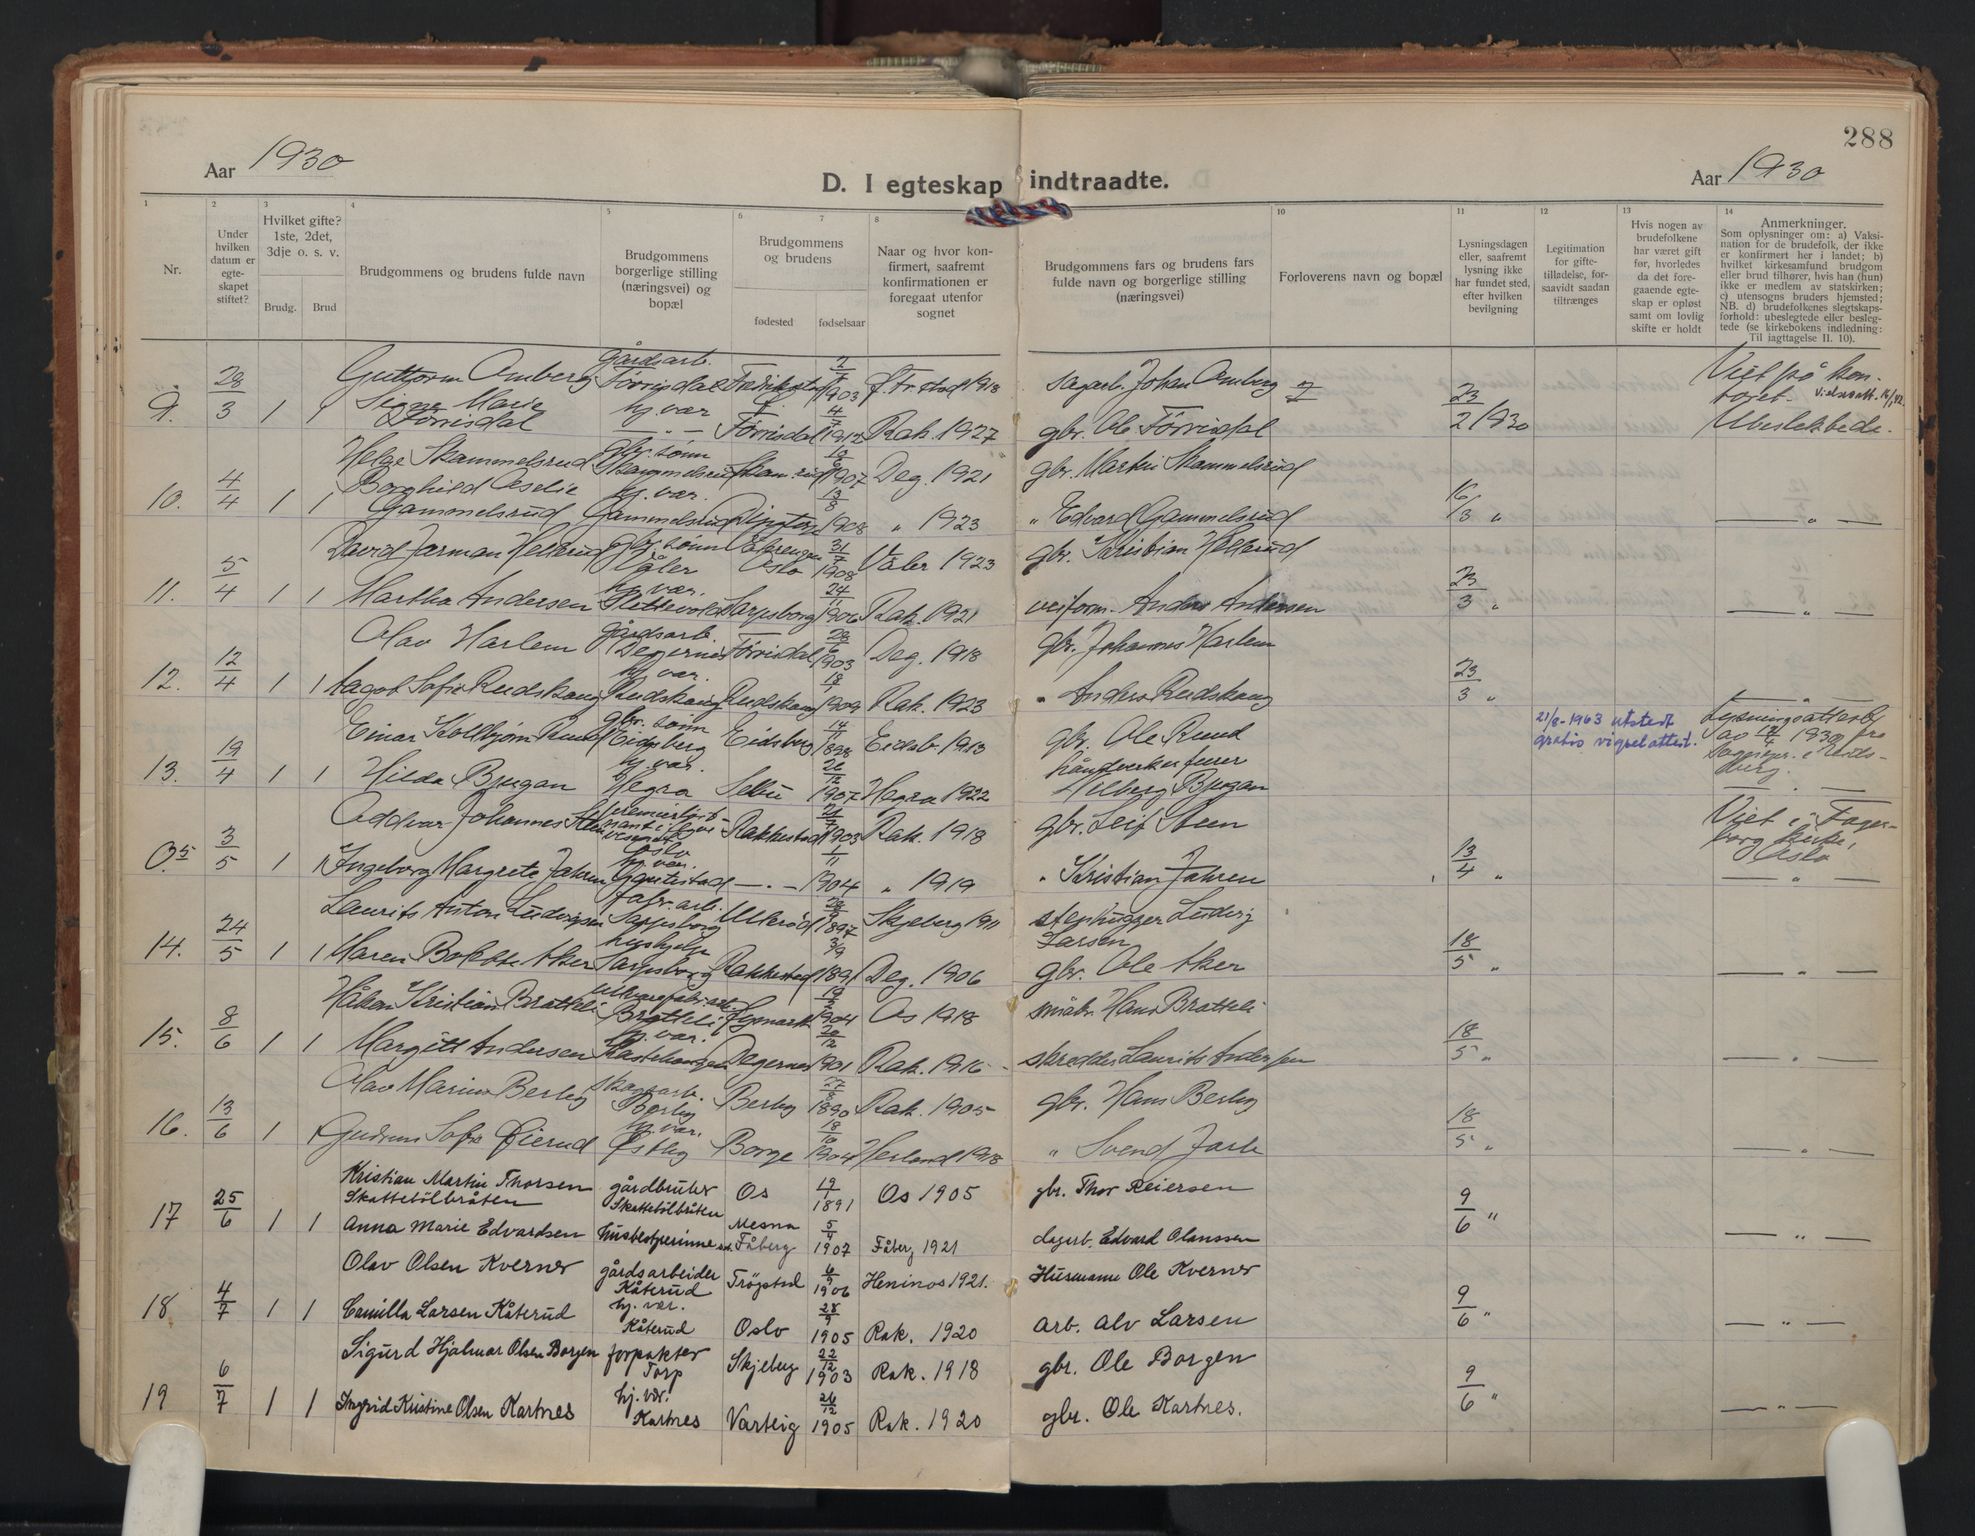 288
Aar 1930
D. I egteskap indtraadte.
Aar 1930
1 2 3 4 5 6 7 8 10 11 12 13 14
Nr.
Under hvilken datum er egteskapet stiftet?
Hvilket gifte? 1ste, 2det, 3dje o. s. v.
Brudg. Brud
Brudgommens og brudens fulde navn
Brudgommens borgerlige stilling (næringsvei) og bopæl
Brudgommens og brudens
fødested fødselsaar
Naar og hvor konfirmert, saafremt konfirmationen er foregaat utenfor sognet
Brudgommens fars og brudens fars fulde navn og borgerlige stilling (næringsvei)
Forloverens navn og bopæl
Lysningsdagen eller, saafremt lysning ikke har fundet sted, efter hvilken bevilgning
Legitimation for giftetilladelse, forsaavidt saadan tiltrænges
Hvis nogen av brudefolkene har været gift før, hvorledes da det foregaaende egteskap er opløst samt om lovlig skifte er holdt
Anmerkninger.
Som oplysninger om: a) Vaksination for de brudefolk, der ikke er konfirmert her i landet; b) hvilket kirkesamfund brudgom eller brud tilhører, hvis han (hun) ikke er medlem av statskirken; c) utensogns bruders hjemsted; NB. d) brudefolkenes slegtskapsforhold: ubeslegtede eller beslegtede (se kirkebokens indledning: Til jagttagelse II. 10).
Guttorm Omberg gårdsarb. Törrisdal Fredrikstad 1903 F.stad 1918 sagarb. Johan Omberg Viet på kontoret.
9. 28/3 1 1 Signe Marie Törrisdal hj. vær. Törrisdal 4/7 1912 Rak. 1927 gbr. Ole Törrisdal 23/2 1930 Ubeslektede.
Helge Skammelsrud gbr. sønn Skammelsrud 1907 Deg. 1921 gbr. Martin Skammelsrud
10. 4/4 1 1 Borghild Gammelsrud hj. vær. Gammelsrud 13/8 1908 " 1923 " Edvard Gammelsrud 16/3 " — " —
David Jarman Hellerud gbr. sønn Våler Oslo 31/7 1908 Våler 1923 gbr. Kristian Hellerud
11. 5/4 1 1 Martha Andersen hj. vær. Slettevold Sarpsborg 24/11 1906 Rak. 1921 veiform. Anders Andersen 23/3 " — " —
Olav Harlem gårdsarb. Degernes Törrisdal 1903 Deg. 1918 gbr. Johannes Harlem
12. 12/4 1 1 Aagot Sofie Rudskaug hj. vær. Rudskaug Rudskaug 1909 Rak. 1923 " Anders Rudskaug 23/3 " — " —
Einar Kolbjørn Ruud gbr. sønn Eidsberg Eidsberg 1898 Eidsb. 1913 gbr. Ole Ruud 21/8-1963 utstedt gratis vigselattest. Lysningsattest av 1930 fra Sogneprest i Eidsberg.
13. 19/4 1 1 Hilda Bjugan hj. vær. Hegra Selbu 26/12 1907 Hegra 1922 håndverker Bjugan — " —
Oddvar Johannes Steen Oslo Rakkestad 1903 Rak. 1918 gbr. Leif Steen Viet i Fagerborg kirke, Oslo
0.5 3/5 1 1 Ingeborg Margrete Jahren hj. vær. Gautestad — " — 1904 " 1919 " Kristian Jahren 13/4 " — " —
Laurits Anton Ludvigsen fabr. arb. Sarpsborg Ullerød 1897 Skjeberg 1911 stenhugger Ludvig Larsen
14. 24/5 1 1 Maren Bolette Aker hushjelp Sarpsborg Rakkestad 3/9 1891 Deg. 1906 gbr. Ole Aker 18/5 " — " —
Håkon Kristian Bratteli Bratteli Rymark 1904 Os 1918 småbr. Hans Bratteli
15. 8/6 1 1 Margitt Andersen hj. vær. Degernes 20/12 1901 Rak. 1916 skredder Laurits Andersen 18/5 " — " —
Olav Marius Berby skogsarb. Berby Berby 27/8 1890 Rak. 1905 gbr. Hans Berby
16. 13/6 1 1 Gudrun Sofie Øierud hj. vær. Østby Borge 18/10 1904 Herland 1918 " Svend Jarle 18/5 " — " —
Kristian Martin Thorsen Skattebölbråten gårdbruker Skattebölbråten Os 19/1 1891 Os 1905 gbr. Thor Reiersen
17 25/6 1 1 Anna Marie Edvardsen husbestyrerinne Mesna Fåberg 5/4 1907 Fåberg 1921 dagarb. Edvard Olaussen 9/6 " — " —
Olav Olsen Kverner gårdsarbeider Kåterud Trøgstad 6/9 1906 Heninos 1921. Husmann Ole Kverner
18 4/7 1 1 Camilla Larsen Kåterud hj. vær. Kåterud Oslo 28/9 1905 Rak. 1920 arb. Alv Larsen 9/6 " — " —
Sigurd Hjalmar Olsen Borgen forpakter Torp Skjeberg 22/12 1903 Rak. 1918 gbr. Ole Borgen
19 6/7 1 1 Ingrid Kristine Olsen Kartnes hj. vær. Kartnes Varteig 26/12 1905 Rak. 1920 gbr. Ole Kartnes. 9/6 " — " —